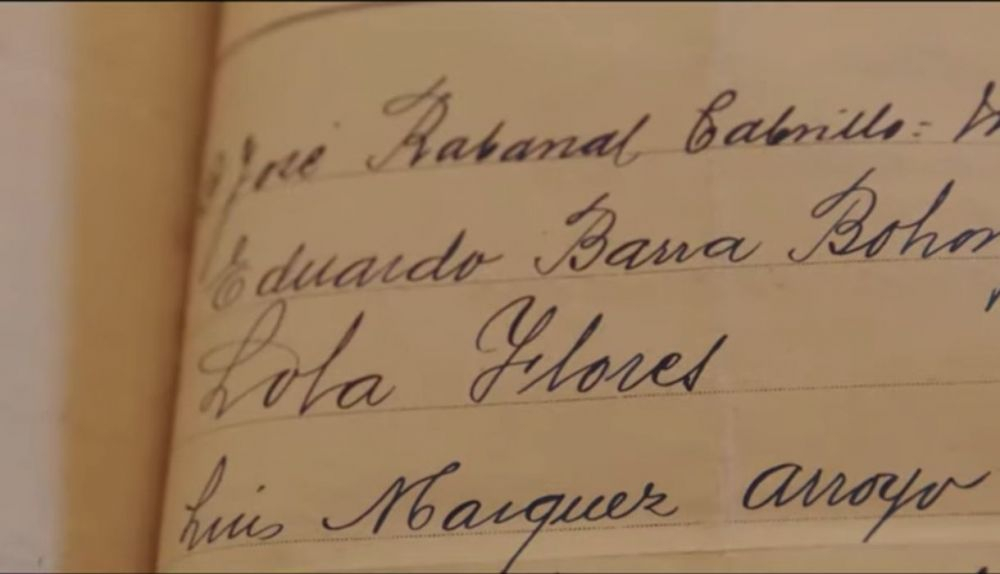 José Rabanal Cabrillo=
Eduardo Barra
Lola Flores
Luis Marquez Arroyo